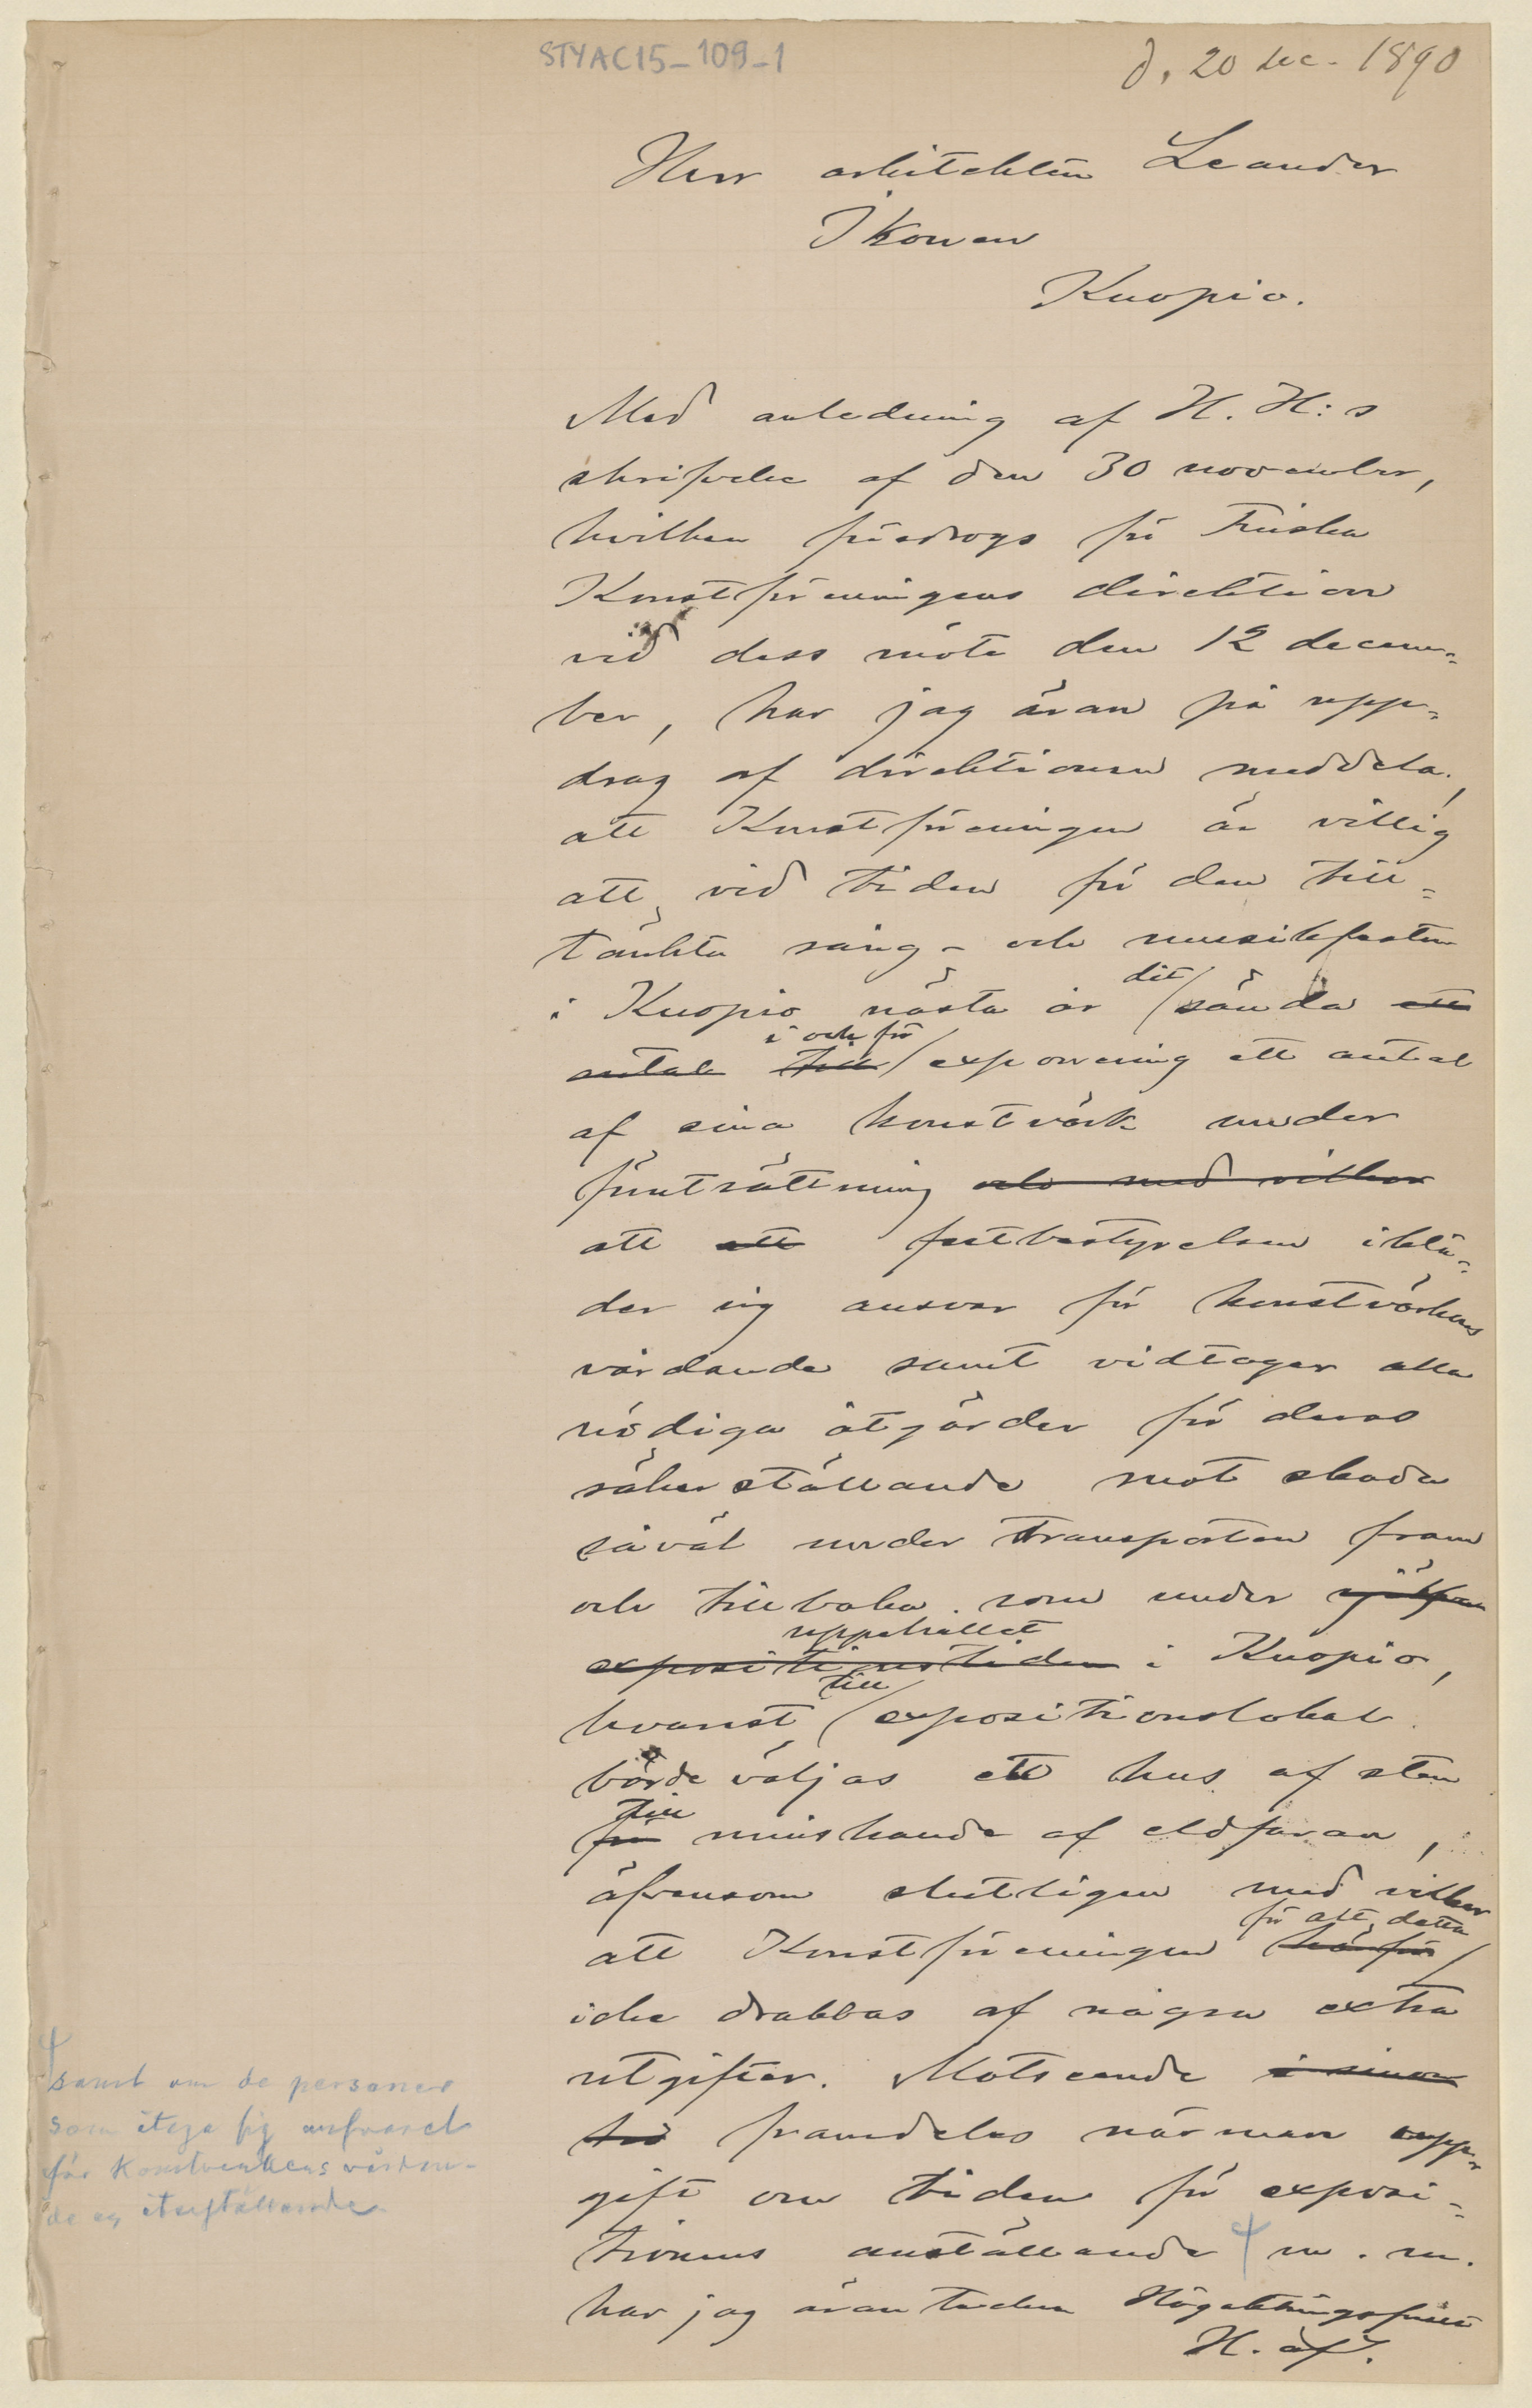 STYAC15_109_1
d. 20 dec. 1890
Herr arkitekten Leander
Ikonen
Kuopio.
Med anledning af H. H:s
skrifvelse af den 30 november,
hvilken föredrogs för Finska
Konstföreningens direktion
vid dess möte den 12 decem-
ber, har jag äran på upp-
drag af direktionen meddela,
att Konstföreningen är villig
att vid tiden för den till-
tänkta sång- och musikfesten
dit
i Kuopio nästa år sända ett
i och för
antal till exponering ett antal
af sina konstvärk under
förutsättning och med vilkor
att att festbestyrelsen iklä-
der sig ansvar för konstvärkens
vårdande samt vidtager alla
nödiga åtgärder för deras
säkerställande mot skada
såväl under transporten fram
och tillbaka som under själfva
uppehållet
expositionstiden i Kuopio,
till
hvarest expositionslokal
börde väljas ett hus af sten
till
för minskande af eldfaran,
äfvensom slutligen med vilkor
för att detta
att Konstföreningen härför
icke drabbas af några extra
utgifter. Motseende i sinom
tid framdeles närmare upp-
gift om tiden för exposi-
tionens anställande m. m.
har jag äran teckna Högaktningsfullt
samt om de personer
som åtaga sig ansvaret
för konstverkens vårdan-
de og återställande